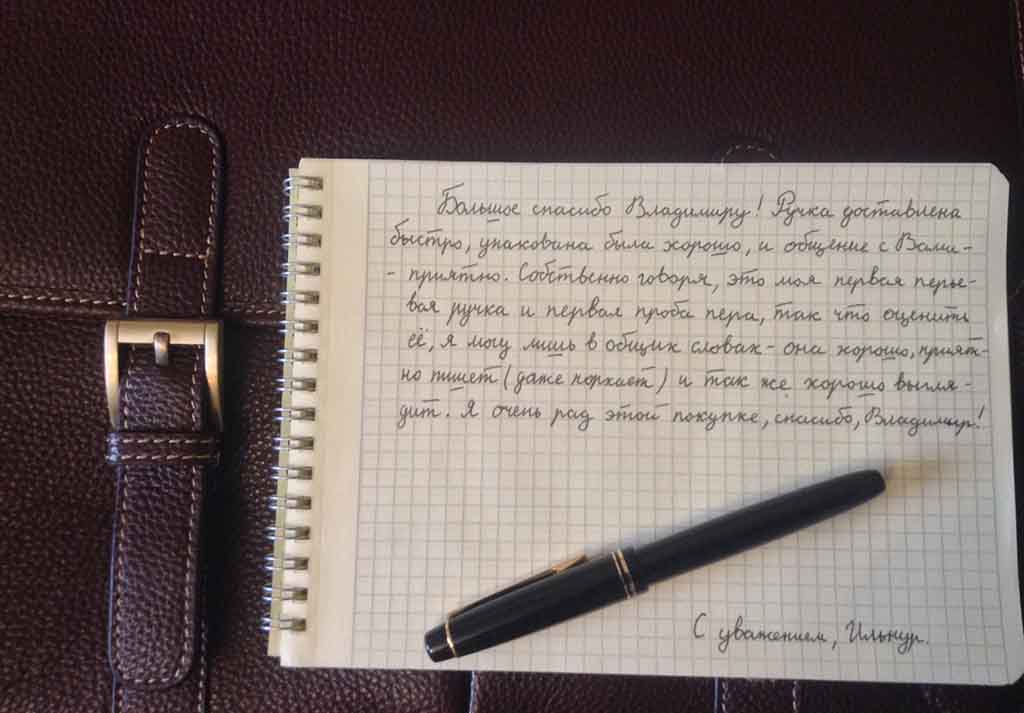 Большое спасибо Владимиру! Ручка доставлена
быстро, упакована была хорошо, и общение с Вами -
- приятно. Собственно говоря, это моя первая перье-
вая ручка и первая проба пера, так что оценить
её, я могу лишь в общих словах - она хорошо, прият-
но пишет (даже порхает) и так же хорошо выгля-
дит. Я очень рад этой покупке, спасибо, Владимир!
С уважением, Ильнур.